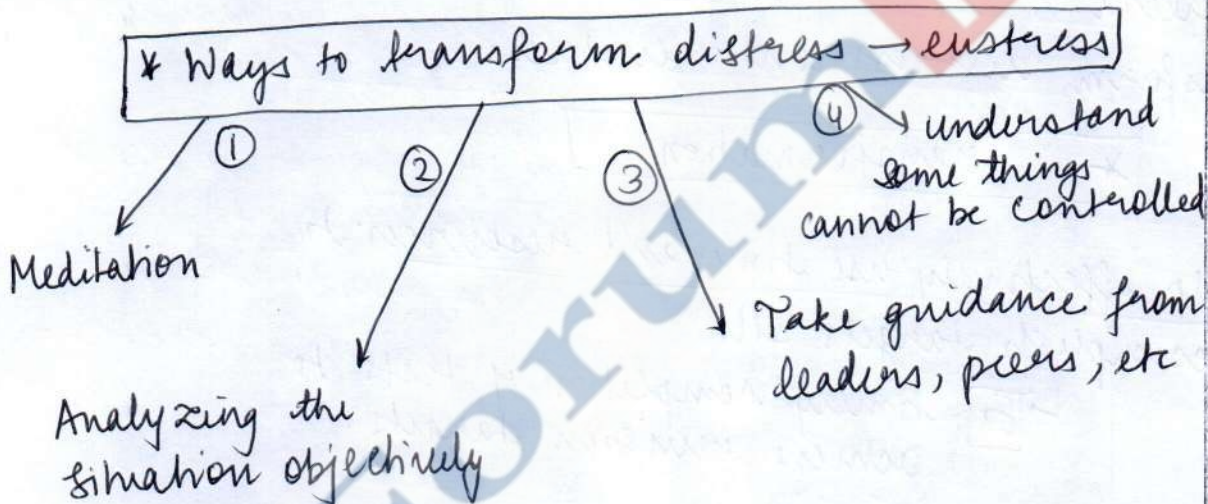 * Ways to transform distress → eustress
①
Meditation
②
Analyzing the
situation objectively
③
Take guidance from
leaders, peers, etc
④
understand
some things
cannot be controlled
Forum